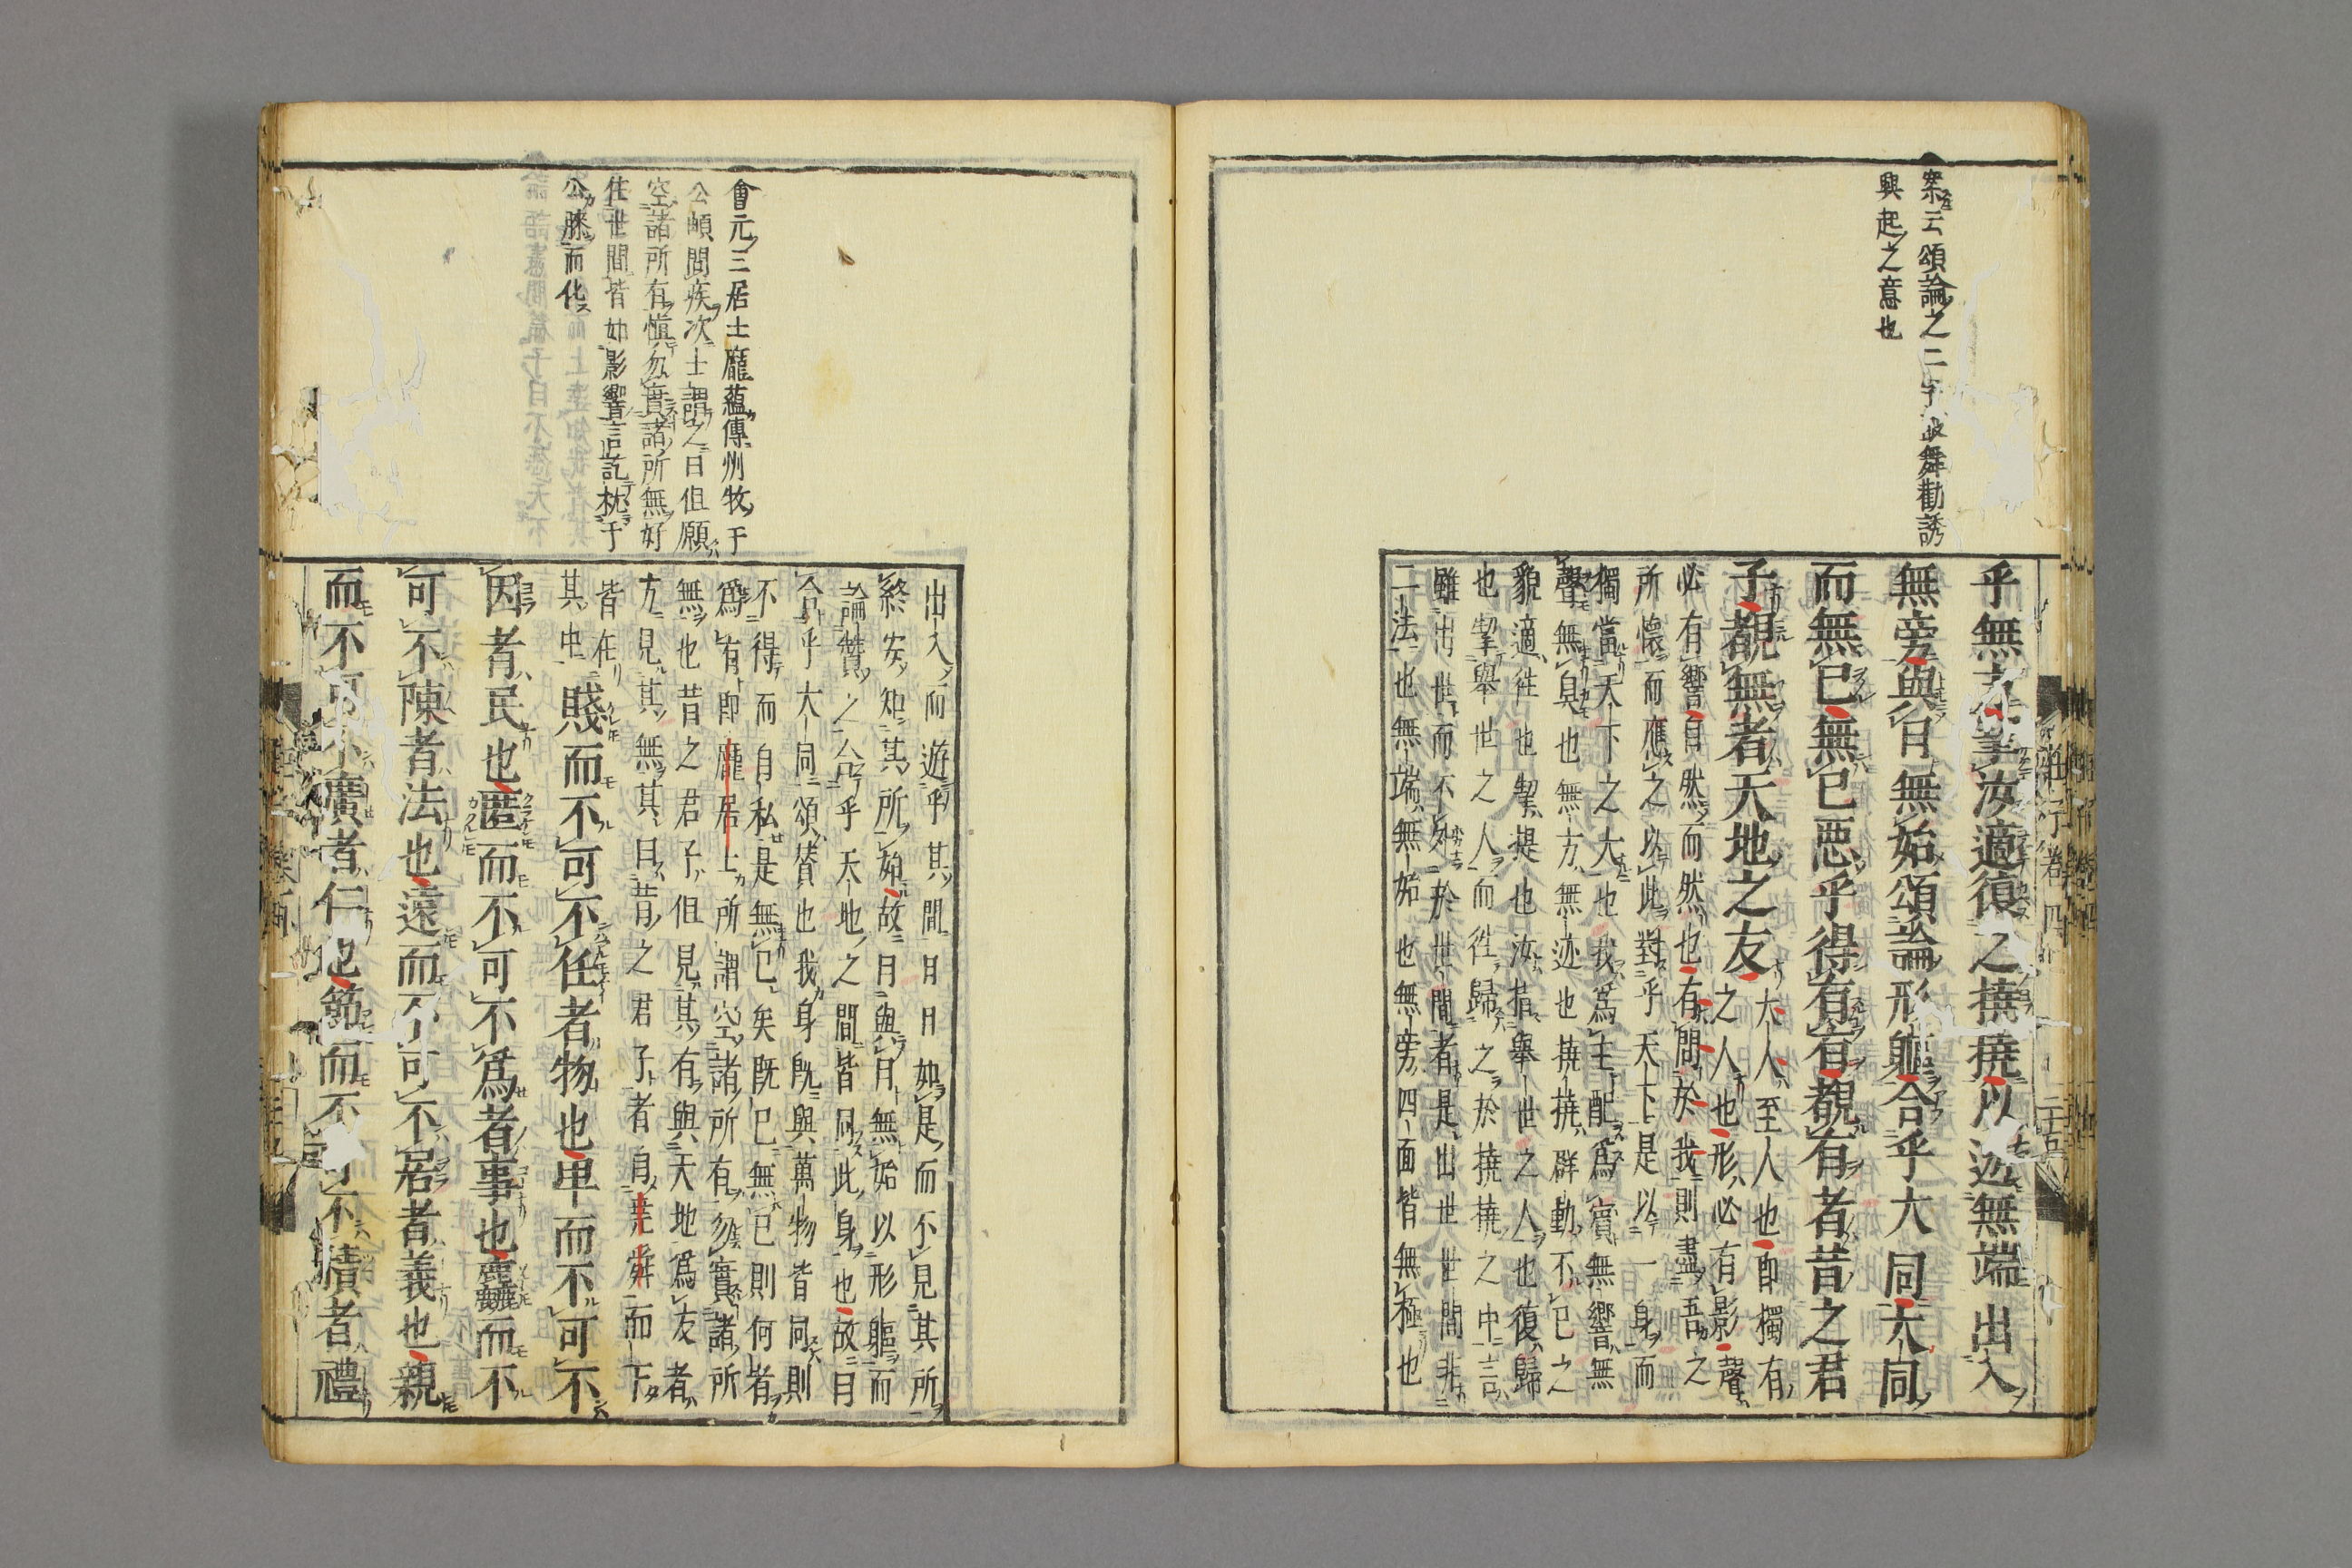 案云頌論之二字鼓舞勸誘
興起之意也
乎無方挈汝適復之撓撓以遊無端出入
無旁與日無始頌論形軀合乎大同大同
而無己無己惡乎得有有覩有者昔之君
子覩無者天地之友
大人至人也即獨有
之人也形必有影聲
必有響自然而然也有問於我則盡吾之
所懷而應之以此對乎天下是以一身而
獨當天下之大也我爲主配爲賓無響無
聲無臭也無方無迹也撓撓群動不已之
貌適往也挈提也汝指舉世之人也復歸
也挈舉世之人而徃歸之於撓撓之中言
雖出世而不外於世間者是出世世間非
二法也無端無始也無旁四面皆無極也
莊子卷四
二十五
會元三居士龐蘊傳州牧于
公頔問疾次士謂之曰但願
空諸所有愼勿實諸所無好
住世間皆如影響言訖枕于
公膝而化
出入而遊乎其間日日如是而不見其所
終安知其所始故曰與日無始以形軀而
論贊之合乎天地之間皆同此身也故曰
合乎大同頌贊也我身既與萬物皆同則
不得而自私是無己矣既已無已則何者
爲有即龐居士所謂空諸所有勿實諸所
無也昔之君子但見其有與天地爲友者
方見其無其曰昔之君子者自堯舜而下
皆在
其中
賤而不可不任者物也卑而不可不
因者民也匿而不可不爲者事也麤而不
可不陳者法也遠而不可不居者義也親
而不可不廣者仁也節而不可不積者禮